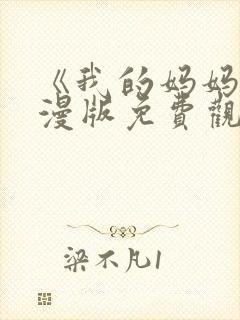 《我的妈妈
漫版免費觀
梁不凡1